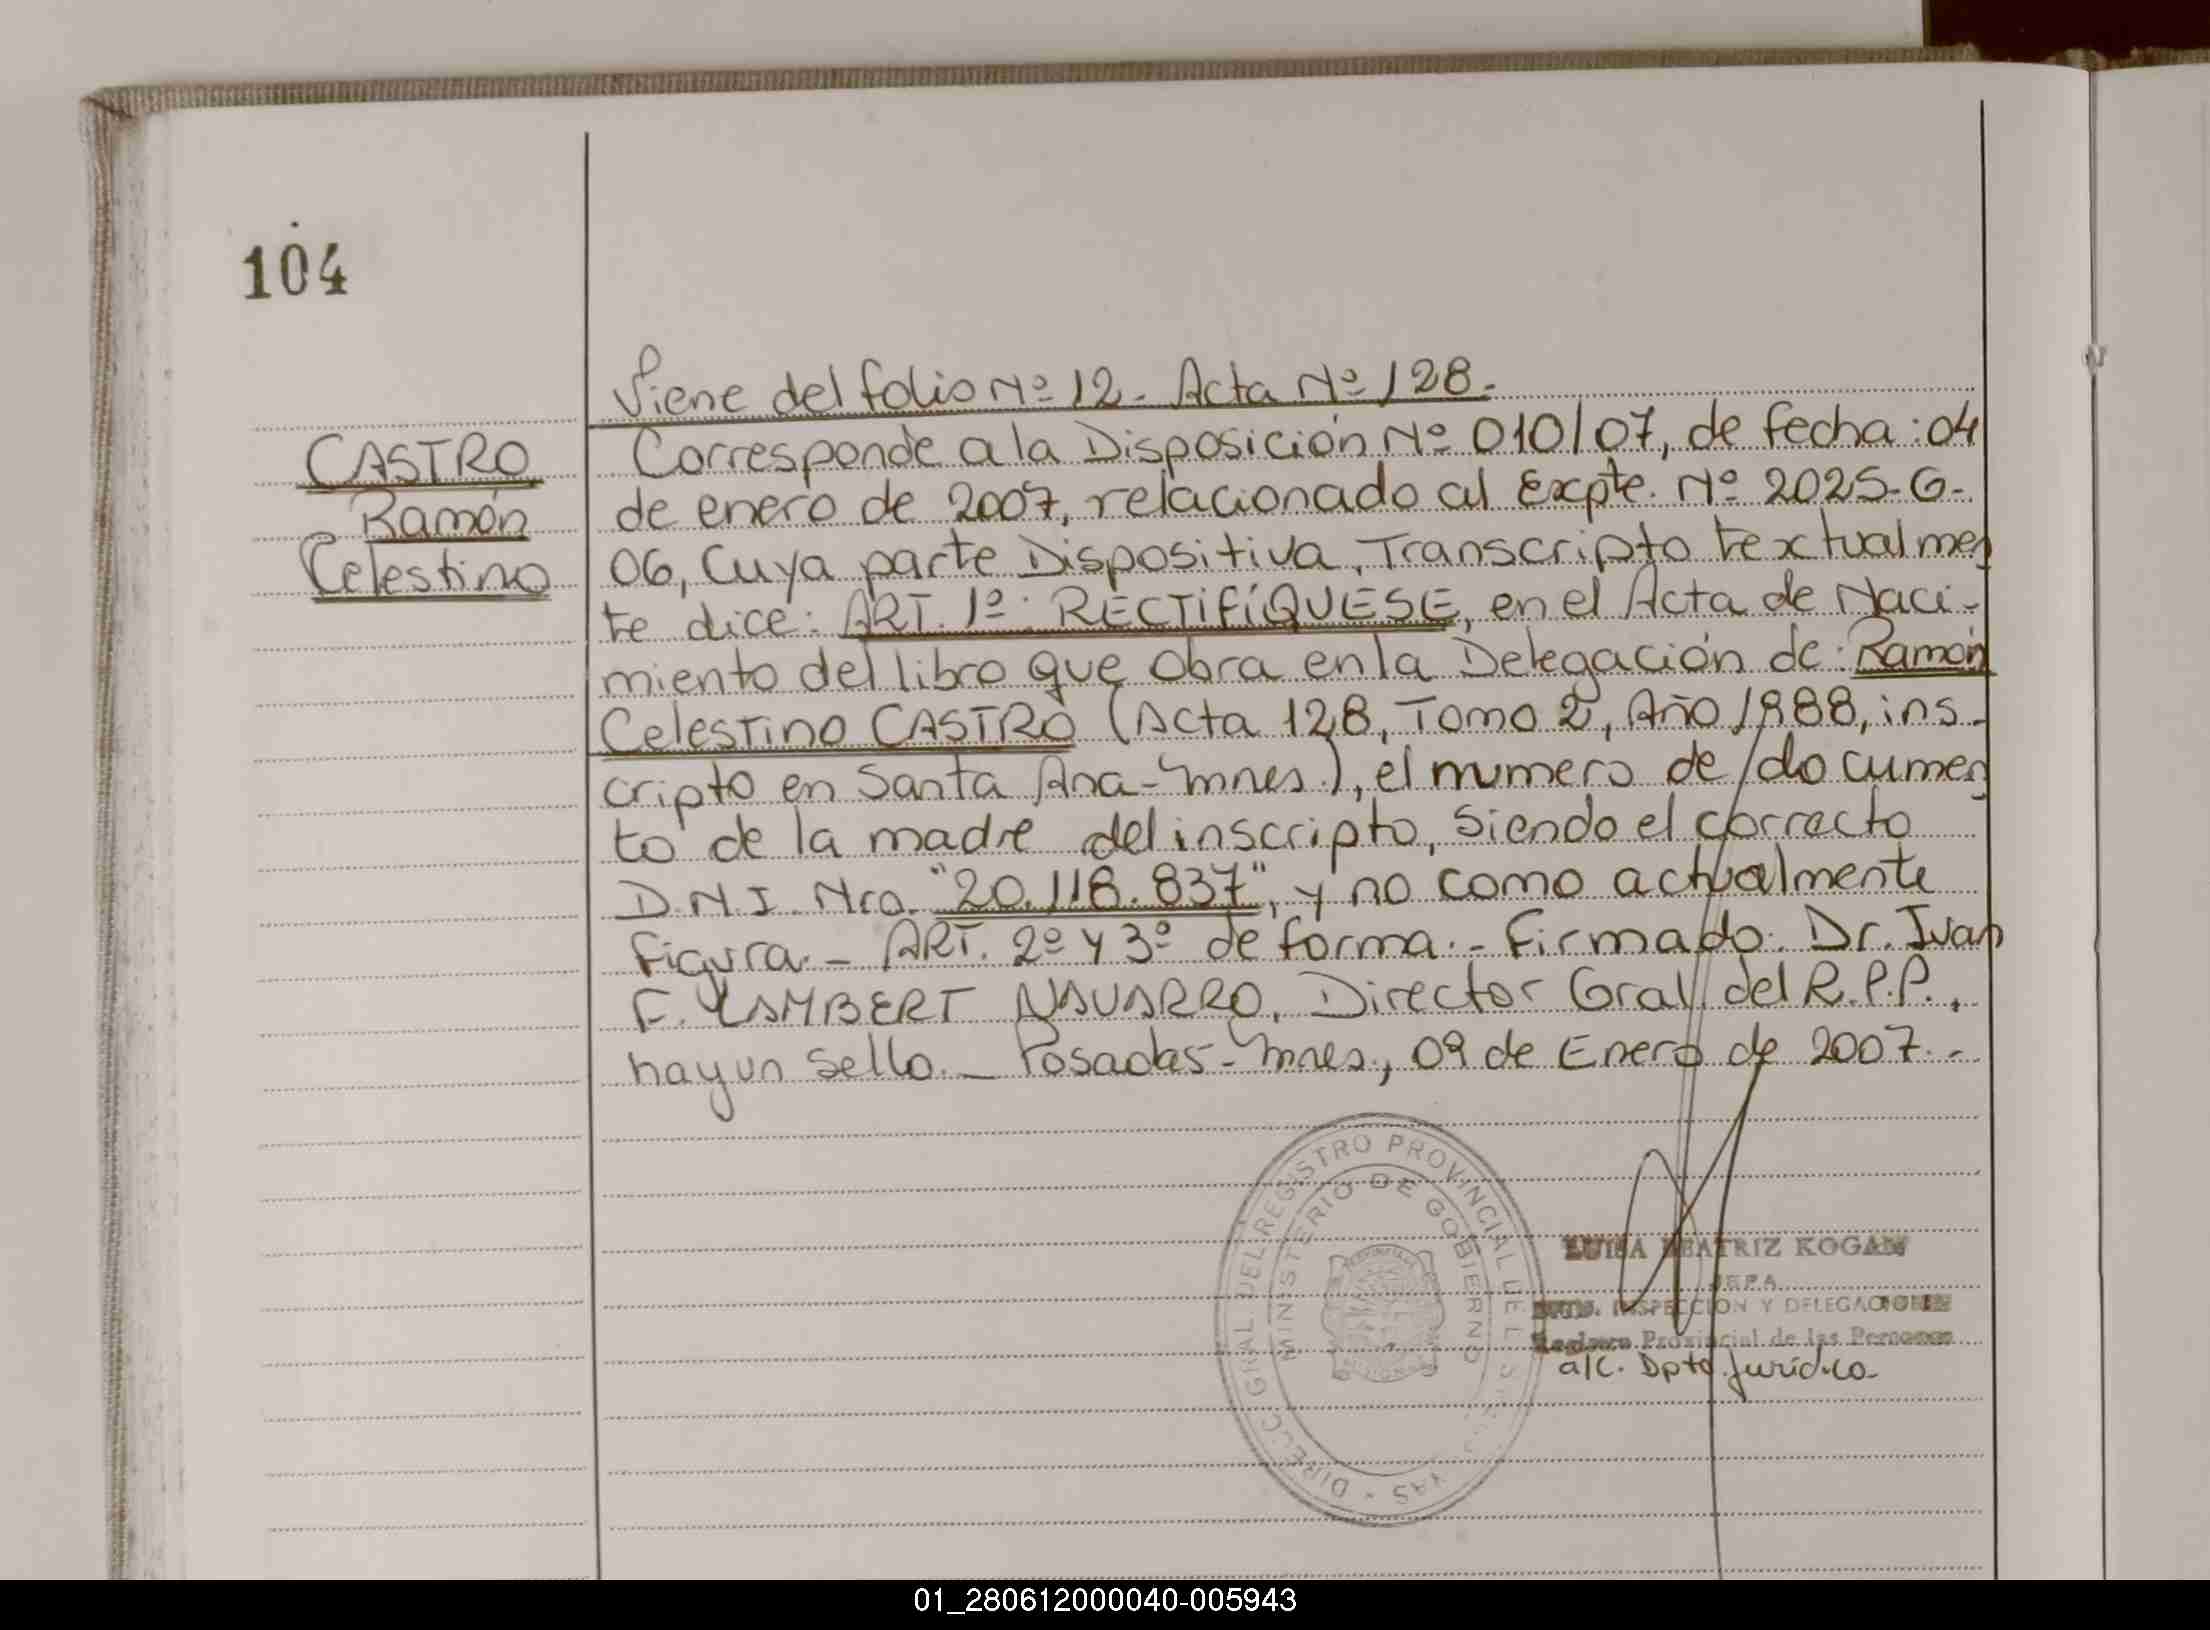 104
Viene del folio Nº 12. Acta Nº 128.-
CASTRO
Ramón
Celestino
Corresponde a la Disposición Nº 010/07, de fecha: 04
de enero de 2007, relacionado al Expte. Nº 2025-G-
06, Cuya parte Dispositiva, Transcripto textualmen
te dice: ART. 1º: RECTIFÍQUESE, en el Acta de Naci-
miento del libro que obra en la Delegación de: Ramón
Celestino CASTRO (Acta 128, Tomo 2, Año 1988, ins-
cripto en Santa Ana-Mnes.), el numero de documen
to de la madre del inscripto, siendo el correcto
D.N.I. Nro. "20.118.837", y no como actualmente
figura.- ART. 2º y 3º de forma.- Firmado: Dr. Ivan
F. LAMBERT NAVARRO, Director Gral. del R.P.P.,
hay un sello.- Posadas-Mnes., 09 de Enero de 2007.-
DIREC. GRAL. DEL REGISTRO PROVINCIAL DE L
MINISTERIO DE GOBIERNO
LUISA BEATRIZ KOGAN
JEFA
INSPECCION Y DELEGACIONES
Registro Provincial de las Personas
a/c. Dpto Jurídico
01_280612000040-005943